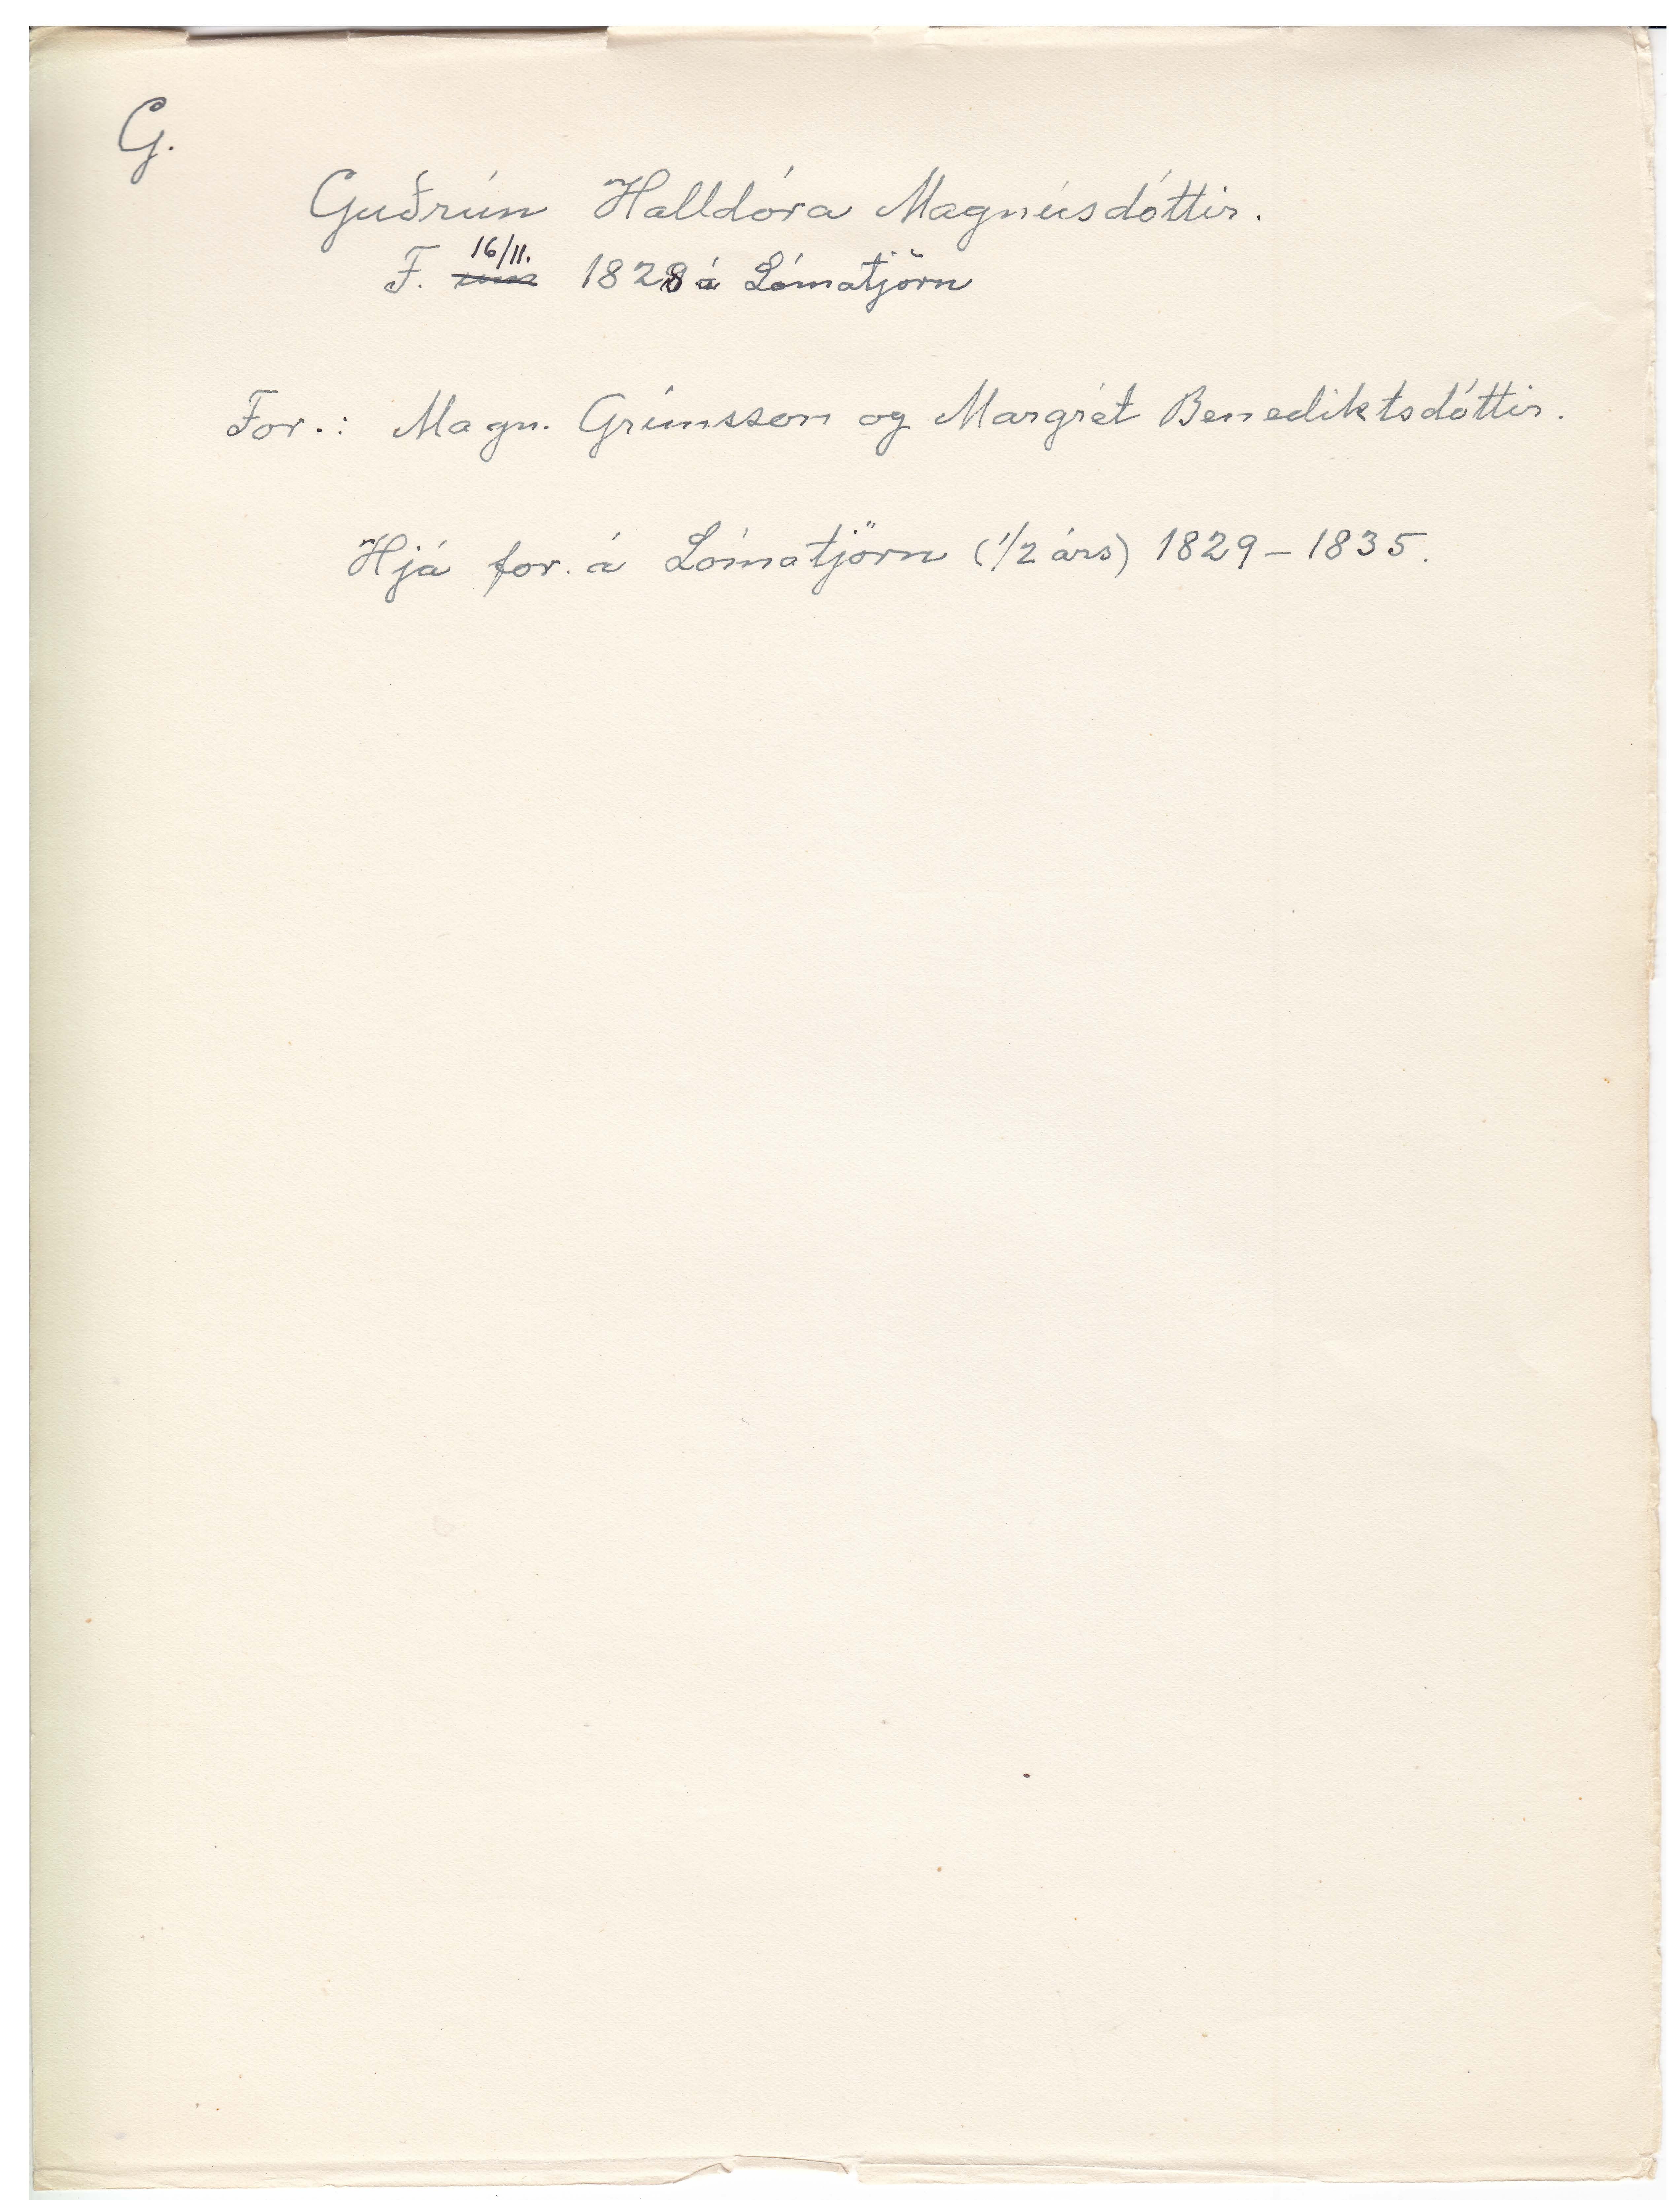 G.
Guðrún Halldóra Magnúsdóttir.
16/11.
F. um 1828 á Lómatjörn
For.: Magn. Grímsson og Margrét Benediktsdóttir.
Hjá for. á Lómatjörn (1/2 árs) 1829–1835.